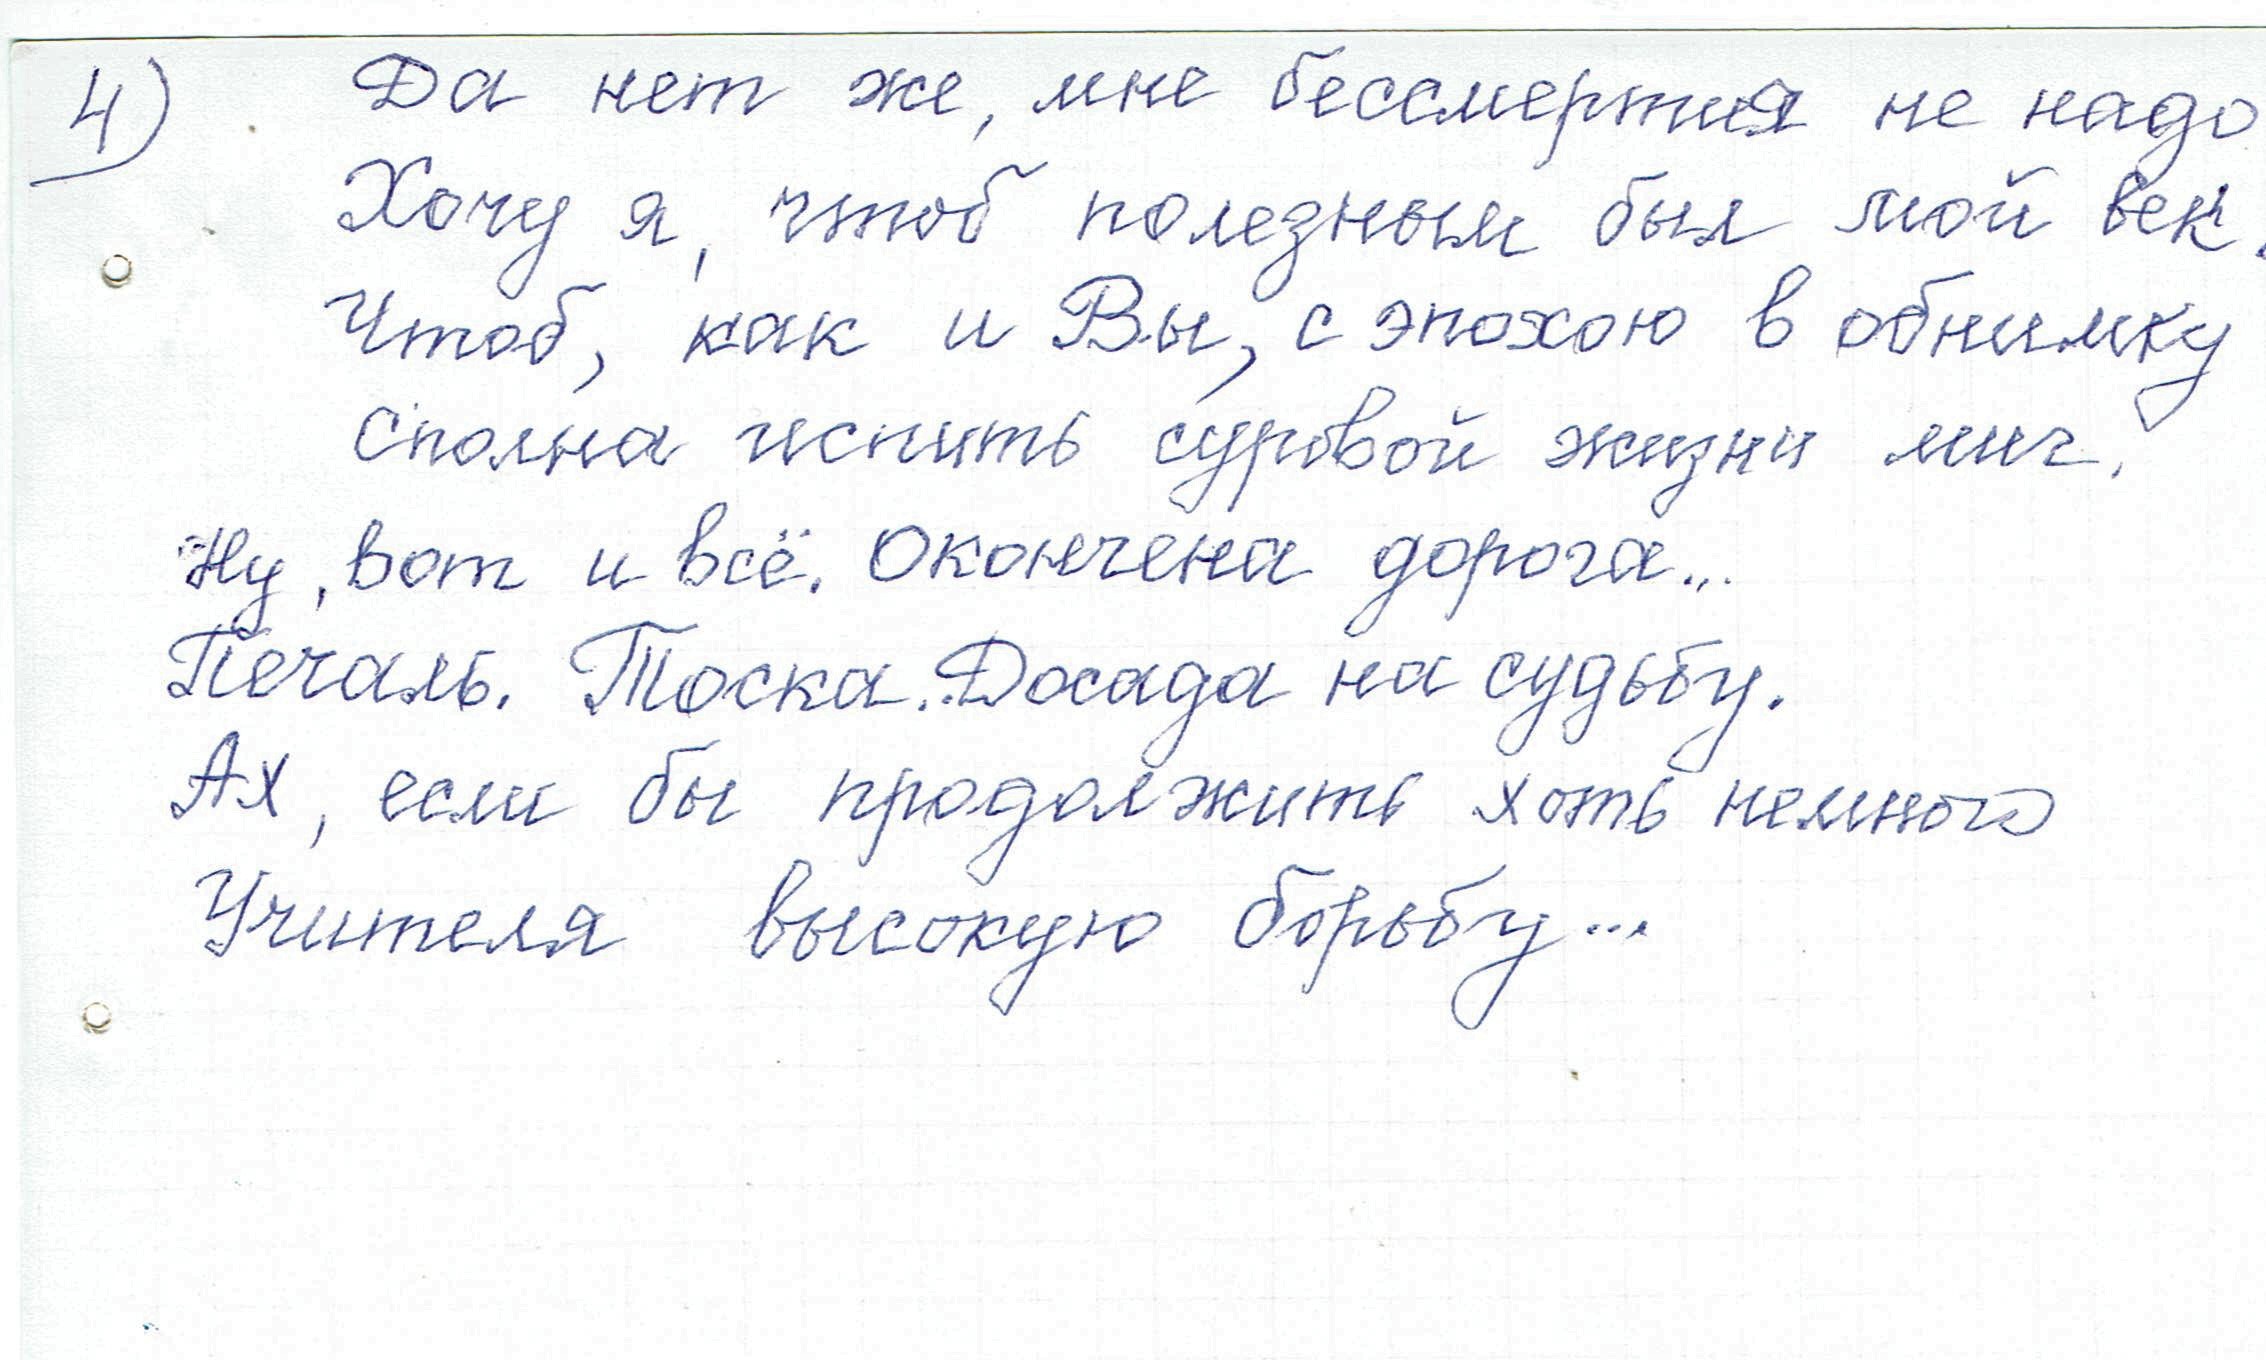 4) Да нет же, мне бессмертия не надо
Хочу я, чтоб полезным был мой век.
Чтоб, как и Вы, с эпохою в обнимку
Сполна испить суровой жизни миг.
Ну, вот и всё. Окончена дорога...
Печаль. Тоска. Досада на судьбу.
Ах, если бы продолжить хоть немного
Учителя высокую борьбу...